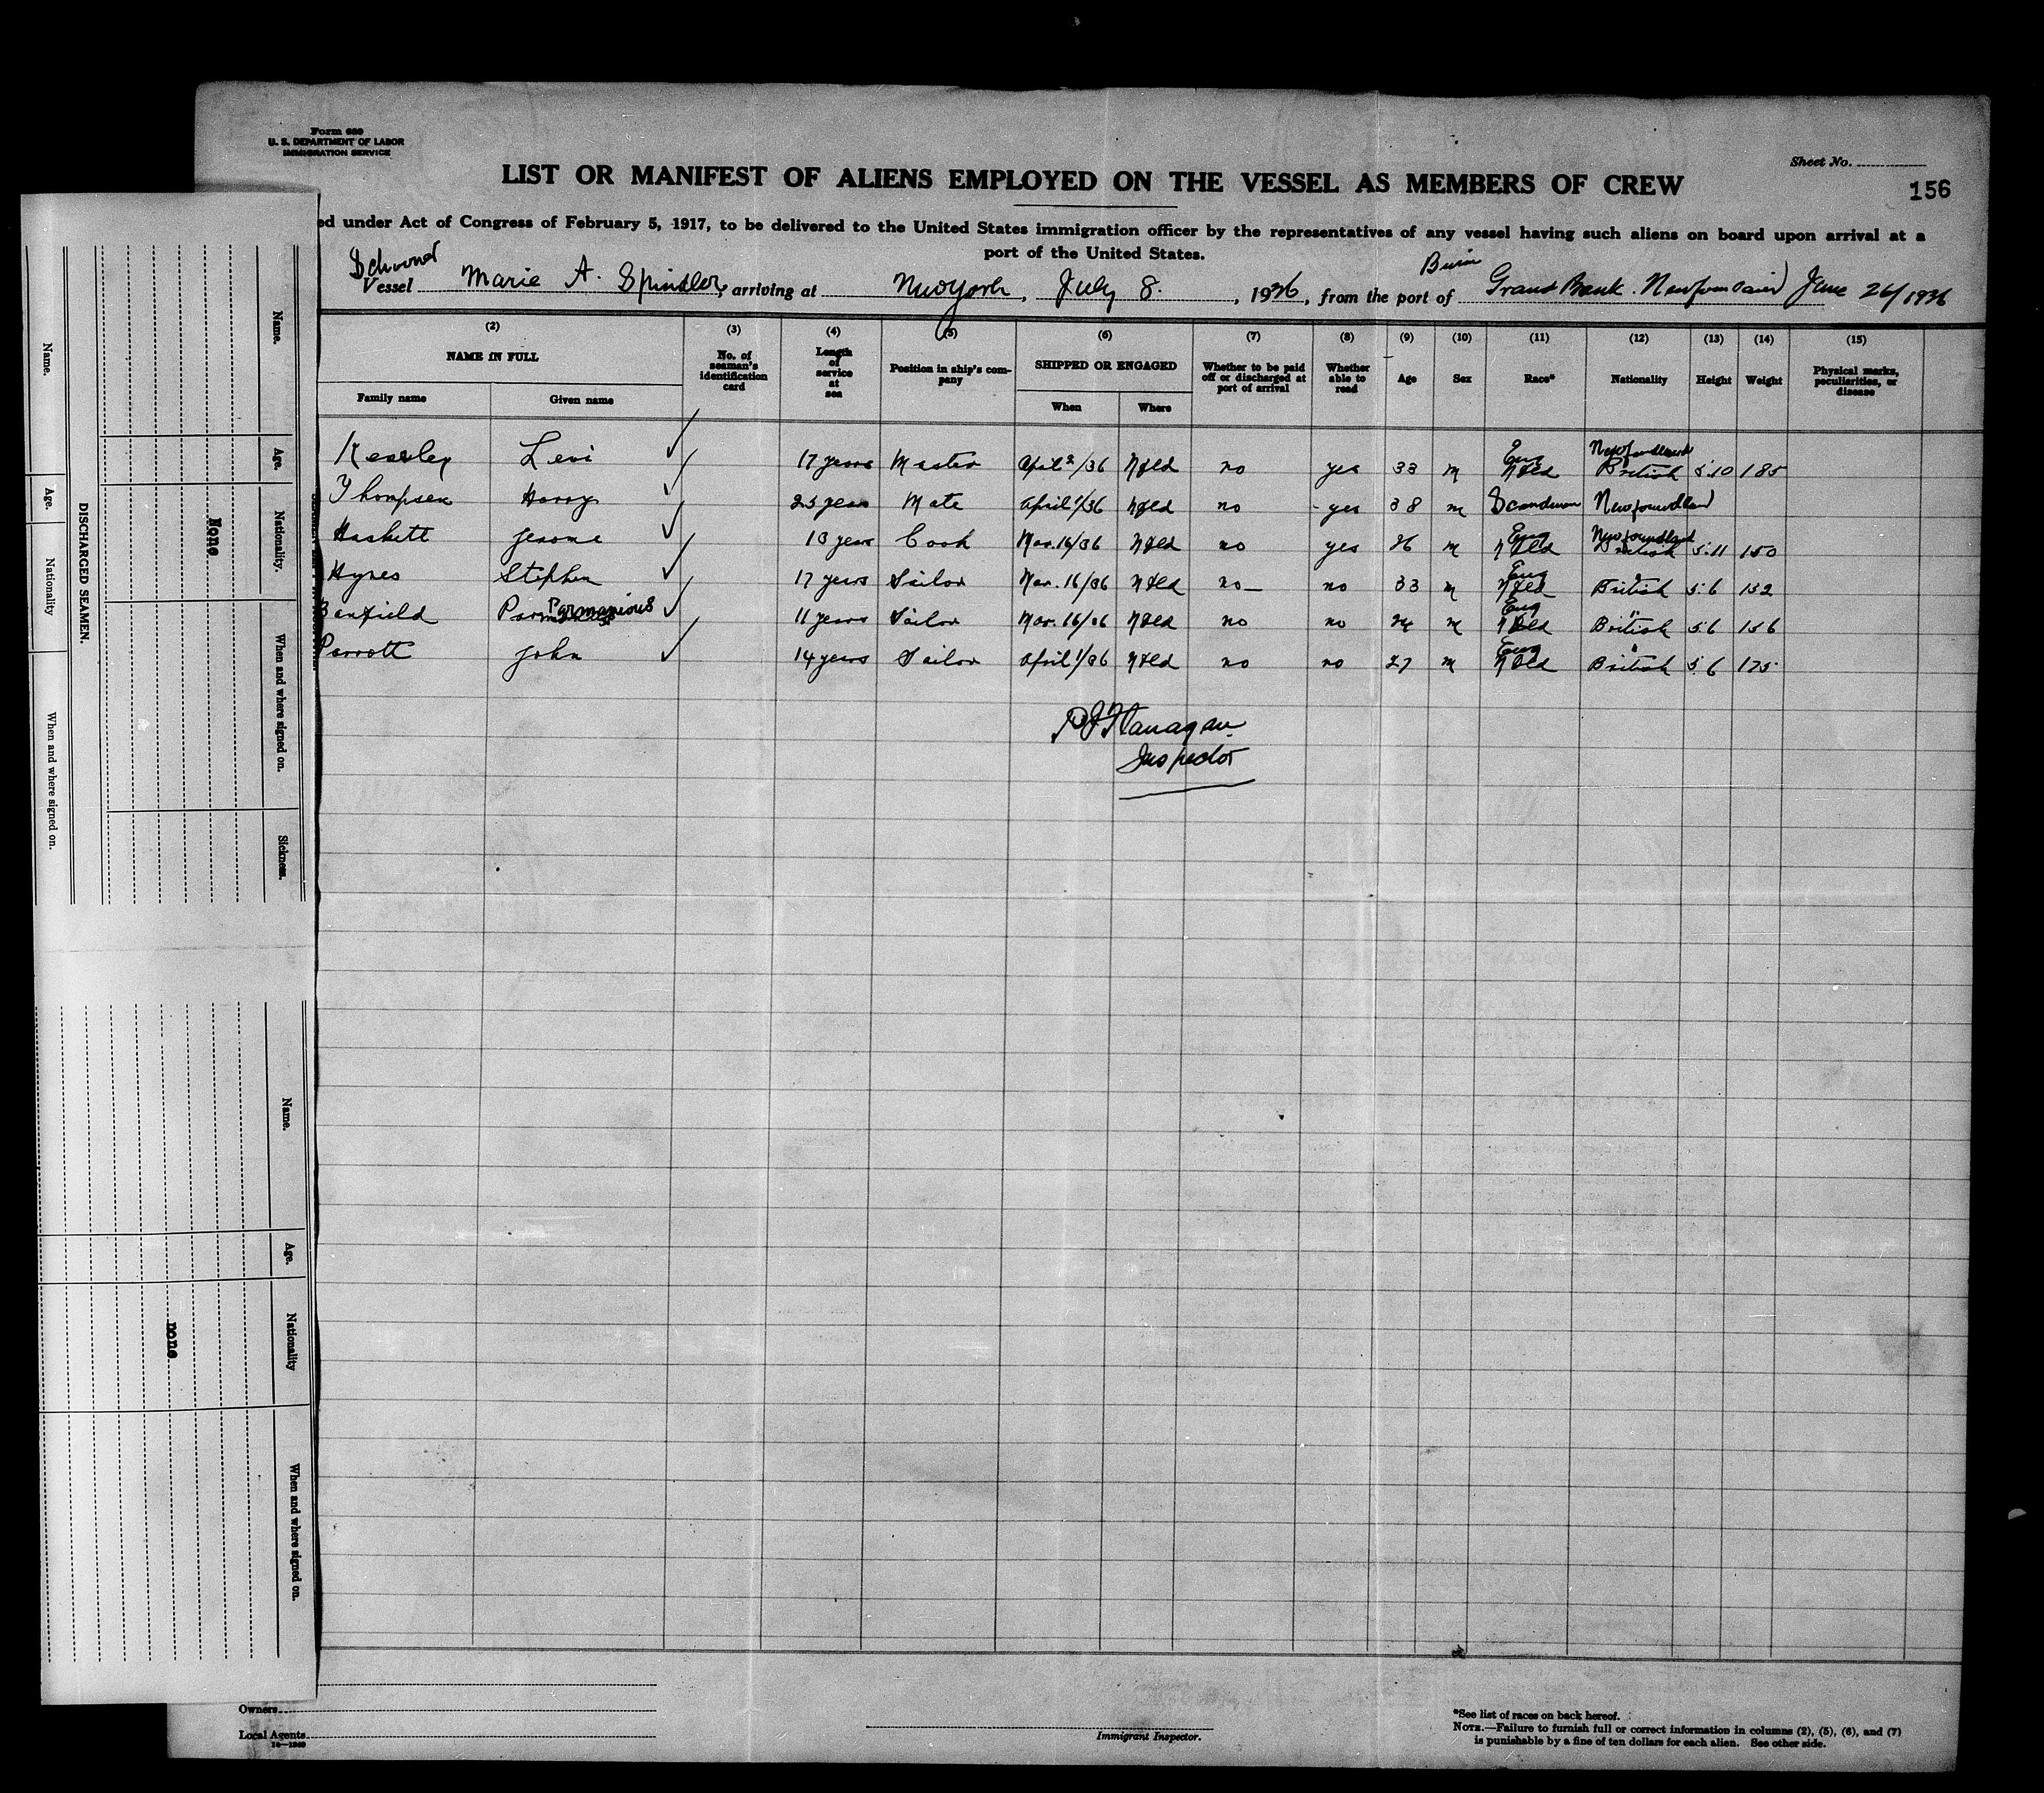 Form 689
U. S. DEPARTMENT OF LABOR
IMMIGRATION SERVICE
Sheet No.
LIST OR MANIFEST OF ALIENS EMPLOYED ON THE VESSEL AS MEMBERS OF CREW
156
ed under Act of Congress of February 5, 1917, to be delivered to the United States immigration officer by the representatives of any vessel having such aliens on board upon arrival at a
port of the United States.
Burin
Vessel Marie A. Spindler, arriving at New York, July 8., 1936, from the port of Grand Bank. Newfoundland June 26/1936
(2) (3) (4) (5) (6) (7) (8) (9) (10) (11) (12) (13) (14) (15)
NAME IN FULL No. of seaman's identification card Length of service at sea Position in ship's company SHIPPED OR ENGAGED Whether to be paid off or discharged at port of arrival Whether able to read Age Sex Race* Nationality Height Weight Physical marks, peculiarities, or disease
Family name Given name When Where
Eng Newfoundland
Levi 17 years Master April 2/36 Nfld no yes 33 m Nfld British 5.10 185
Thompsen Harry 25 years Mate April 1/36 Nfld no yes 38 m Newfoundland
Eng Newfoundland
Haskett Jerome 13 years Cook Mar. 16/36 Nfld no yes 26 m Nfld British 5.11 150
Eng "
Hynes Stephen 17 years Sailor Mar. 16/36 Nfld no no 33 m Nfld British 5.6 152
Parmanious Eng "
Banfield 11 years Sailor Mar. 16/36 Nfld no no 24 m Nfld British 5.6 156
Eng "
Parrott John 14 years Sailor April 1/36 Nfld no no 27 m Nfld British 5.6 175
P J Flanagan
Inspector
Owners
Local Agents
Immigrant Inspector.
*See list of races on back hereof.
NOTE.—Failure to furnish full or correct information in columns (2), (5), (6), and (7)
is punishable by a fine of ten dollars for each alien. See other side.
DISCHARGED SEAMEN.
Name. Age. Nationality. When and where signed on. Sickness.
None
Name. Age. Nationality When and where signed on.
Name. Age. Nationality When and where signed on.
none